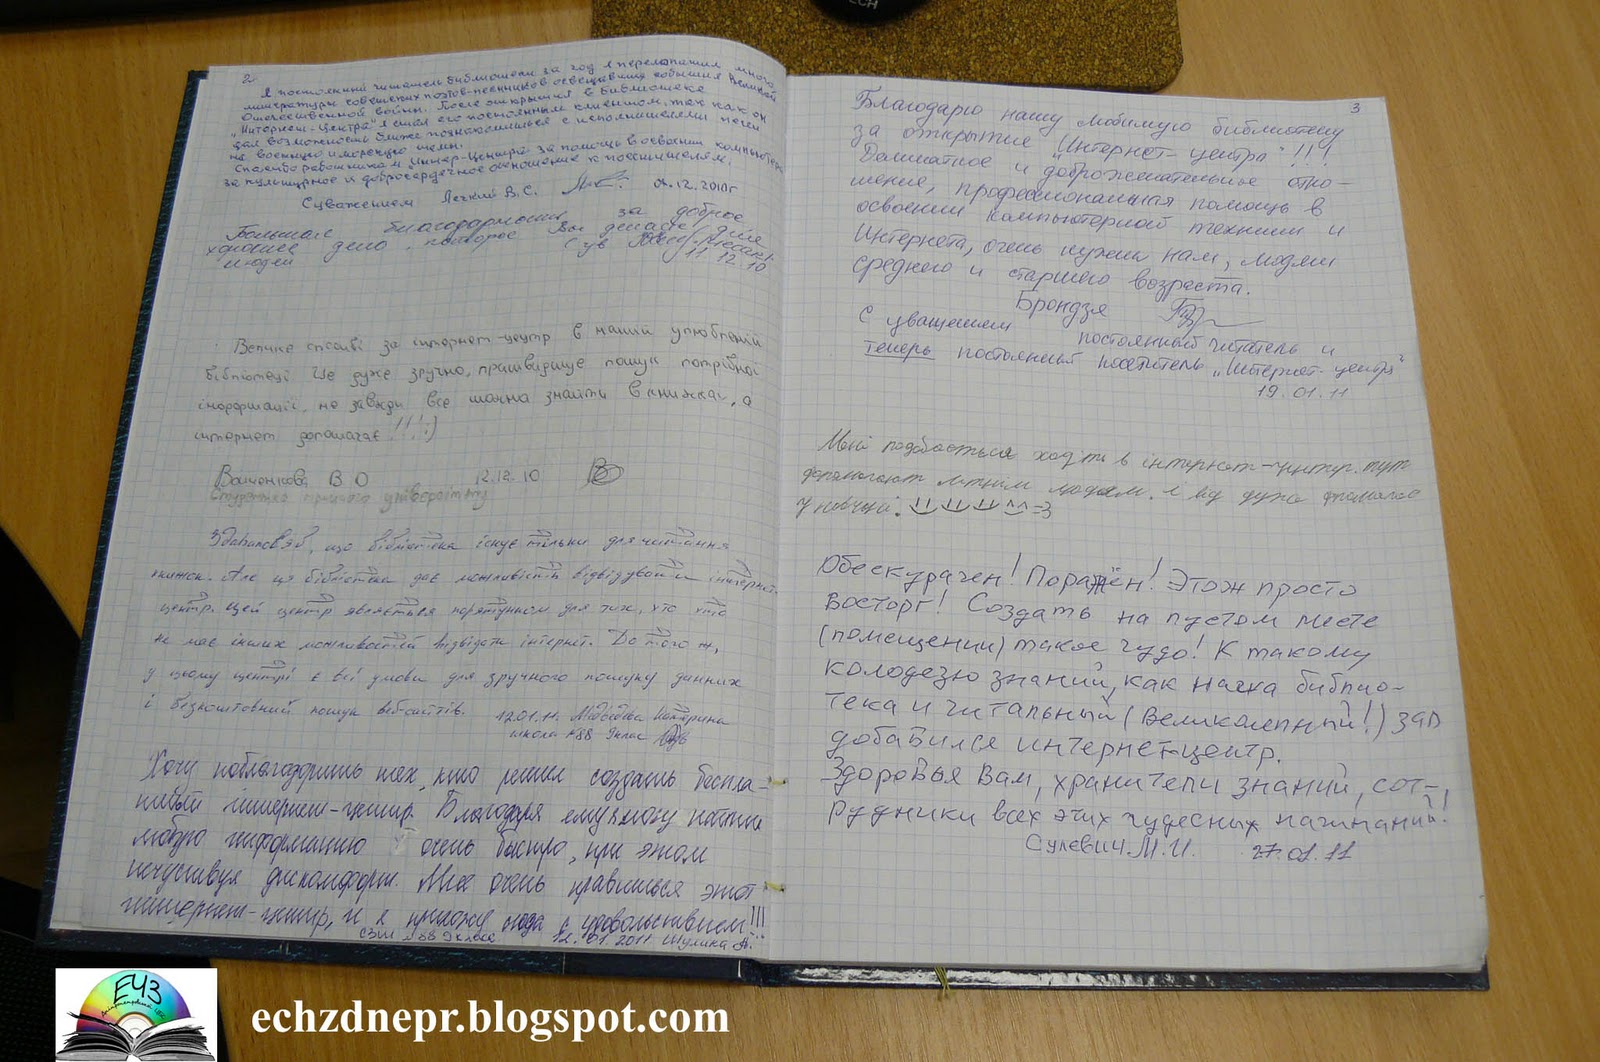 2
Я постоянный читатель библиотеки за год я перелопатил много
литературы советских поэтов-песенников освещавших события Великой
Отечественной войны. После открытия в библиотеке
„Интернет-Центра" я стал его постоянным клиентом, так как он
дал возможность ближе познакомиться с исполнителями песен
на военную и морскую темы.
Спасибо работникам Интер-Центра за помощь в освоении компьютера
за культурное и добросердечное отношение к посетителям.
С уважением Легкий В.С. 04.12.2010г
Большая благодарность за доброе
хорошее дело, которое Вы делаете для
людей С ув
11 12.10
Велике спасибі за інтернет-центр в нашій улюбленій
бібліотеці. Це дуже зручно, пришвидшує пошук потрібної
інформації, не завжди все можна знайти в книжках, а
інтернет допомагає!!!:)
В. О 12.12.10
Студентка університету
, що бібліотека існує тільки для читання
книжок. Але ця бібліотека дає можливість відвідувати інтернет-
центр. Цей центр являється порятунком для тих, хто
не має інших можливостей відвідати інтернет. До того ж,
у цьому центрі є всі умови для зручного пошуку даних
і безкоштовний пошук веб-сайтів. 12.01.11. Медведєва Катерина
школа №88 9клас
Хочу поблагодарить тех, кто решил создать беспла-
тный интернет-центр. Благодаря ему я могу найти
любую информацию очень быстро, при этом
нечувствуя дискомфорт. Мне очень нравиться этот
интернет-центр, и я прихожу сюда с удовольствием!!!
СЗШ №88 9класс 12.01.2011 Шулика А.
3
Благодарю нашу любимую библиотеку
за открытие „Интернет-центра"!!!
Деликатное и доброжелательное отно-
шение, профессиональная помощь в
освоении компьютерной техники и
Интернета, очень нужны нам, людям
среднего и старшего возраста.
Брондзя
С уважением постоянный читатель и
теперь постоянный посетитель „Интернет-центра"
19.01.11
Мені подобається ходити в інтернет-центр. тут
допомагают літнім людям. і від дужа
у навчанні. =3
Обескуражен! Поражён! Этож просто
восторг! Создать на пустом месте
(помещении) такое чудо! К такому
колодезю знаний, как наша библио-
тека и читальный (великолепный!) зал
добавился интернет-центр.
Здоровья Вам, хранители знаний, сот-
рудники всех этих чудесных начинаний!
Сулевич М.И. 27.01.11
ЕЧЗ
echzdnepr.blogspot.com